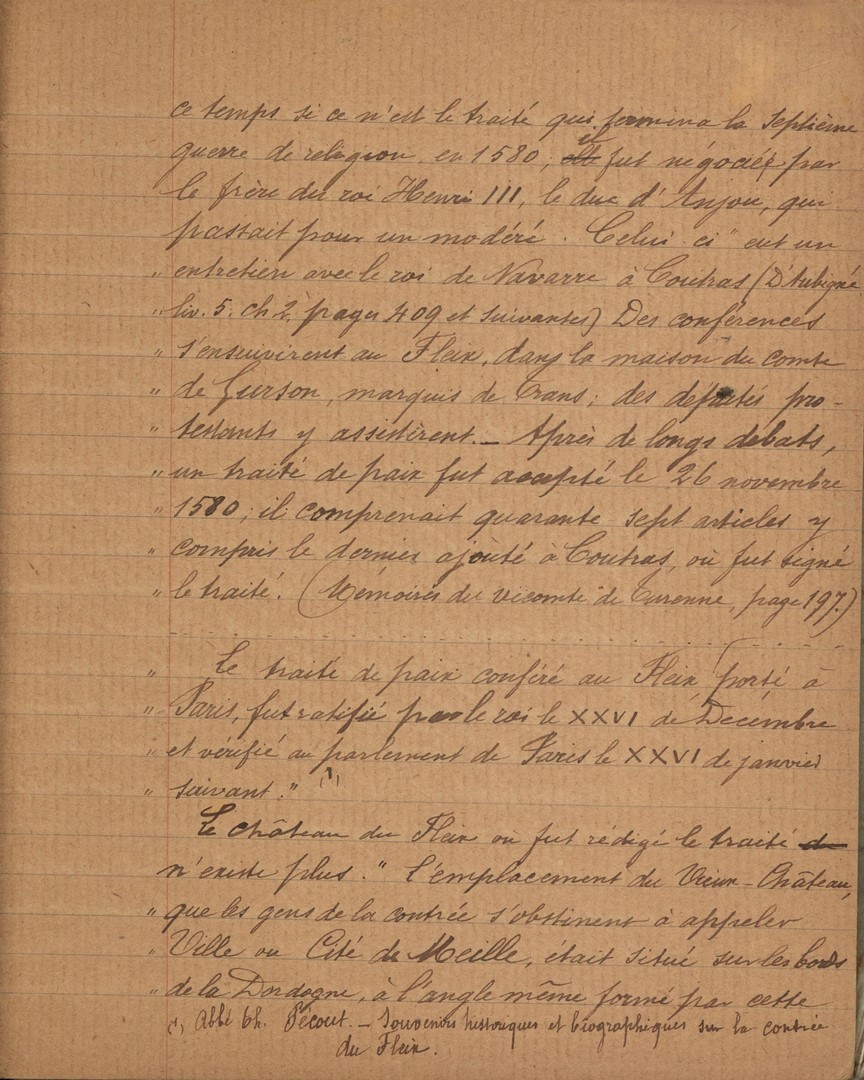 ce temps si ce n'est le traité qui termina la septième
guerre de religion en 1580; il fut négocié par
le frère du roi Henri III, le duc d'Anjou, qui
passait pour un modéré. Celui ci " eut un
" entretien avec le roi de Navarre à Coutras (D'Aubigné
" liv. 5. ch 2, pages 409 et suivantes) Des conférences
" s'ensuivirent au Fleix, dans la maison du comte
" de Gurson, marquis de Trans; des députés pro-
" testants y assistèrent. _ Après de longs débats,
" un traité de paix fut accepté le 26 novembre
" 1580; il comprenait quarante sept articles y
" compris le dernier ajouté à Coutras, où fut signé
" le traité. (Mémoires du vicomte de Turenne, page 197.)
" Le traité de paix conféré au Fleix porté à
" Paris, fut ratifié par le roi le XXVI de Décembre
" et vérifié au parlement de Paris le XXVI de janvier
" suivant." (1)
Le château du Fleix où fut rédigé le traité
n'existe plus. " L'emplacement du Vieux-Château,
" que les gens de la contrée s'obstinent à appeler
" Ville ou Cité de Meille, était situé sur les bords
" de la Dordogne, à l'angle même formé par cette
(1) Abbé Ch. Pécout. _ Souvenirs historiques et biographiques sur la contrée
du Fleix.